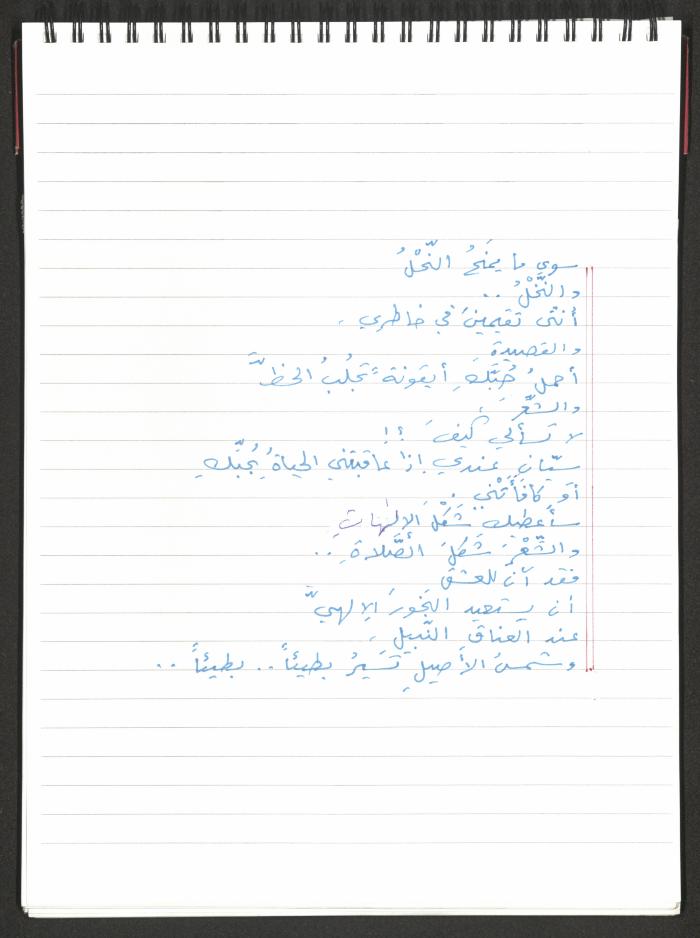 سوى ما يمنَحُ النّخْلُ
والنَّخْلُ ..
أُنثى تقيمينَ في خاطري .
والقصيدة
أحملُ حُبَّكِ أيقونةً تجلُبُ الحظَّ
والشّعْرَ
لا تسألي كيفَ ؟!
سيّانِ عندي إذا عاقبتني الحياةُ بِحُبّكِ
أو كافأتْني .
سأعطيك شَكْلَ الإلهاتِ
والشّعْرَ شَكْلَ الصَّلاةِ ..
فقد آنَ للعشق
أن يستعيد البَخورَ الإلهيَّ
عند العناقِ النّبيلِ
وشمسُ الأصيلِ تَسيرُ بطيئاً .. بطيئاً ..